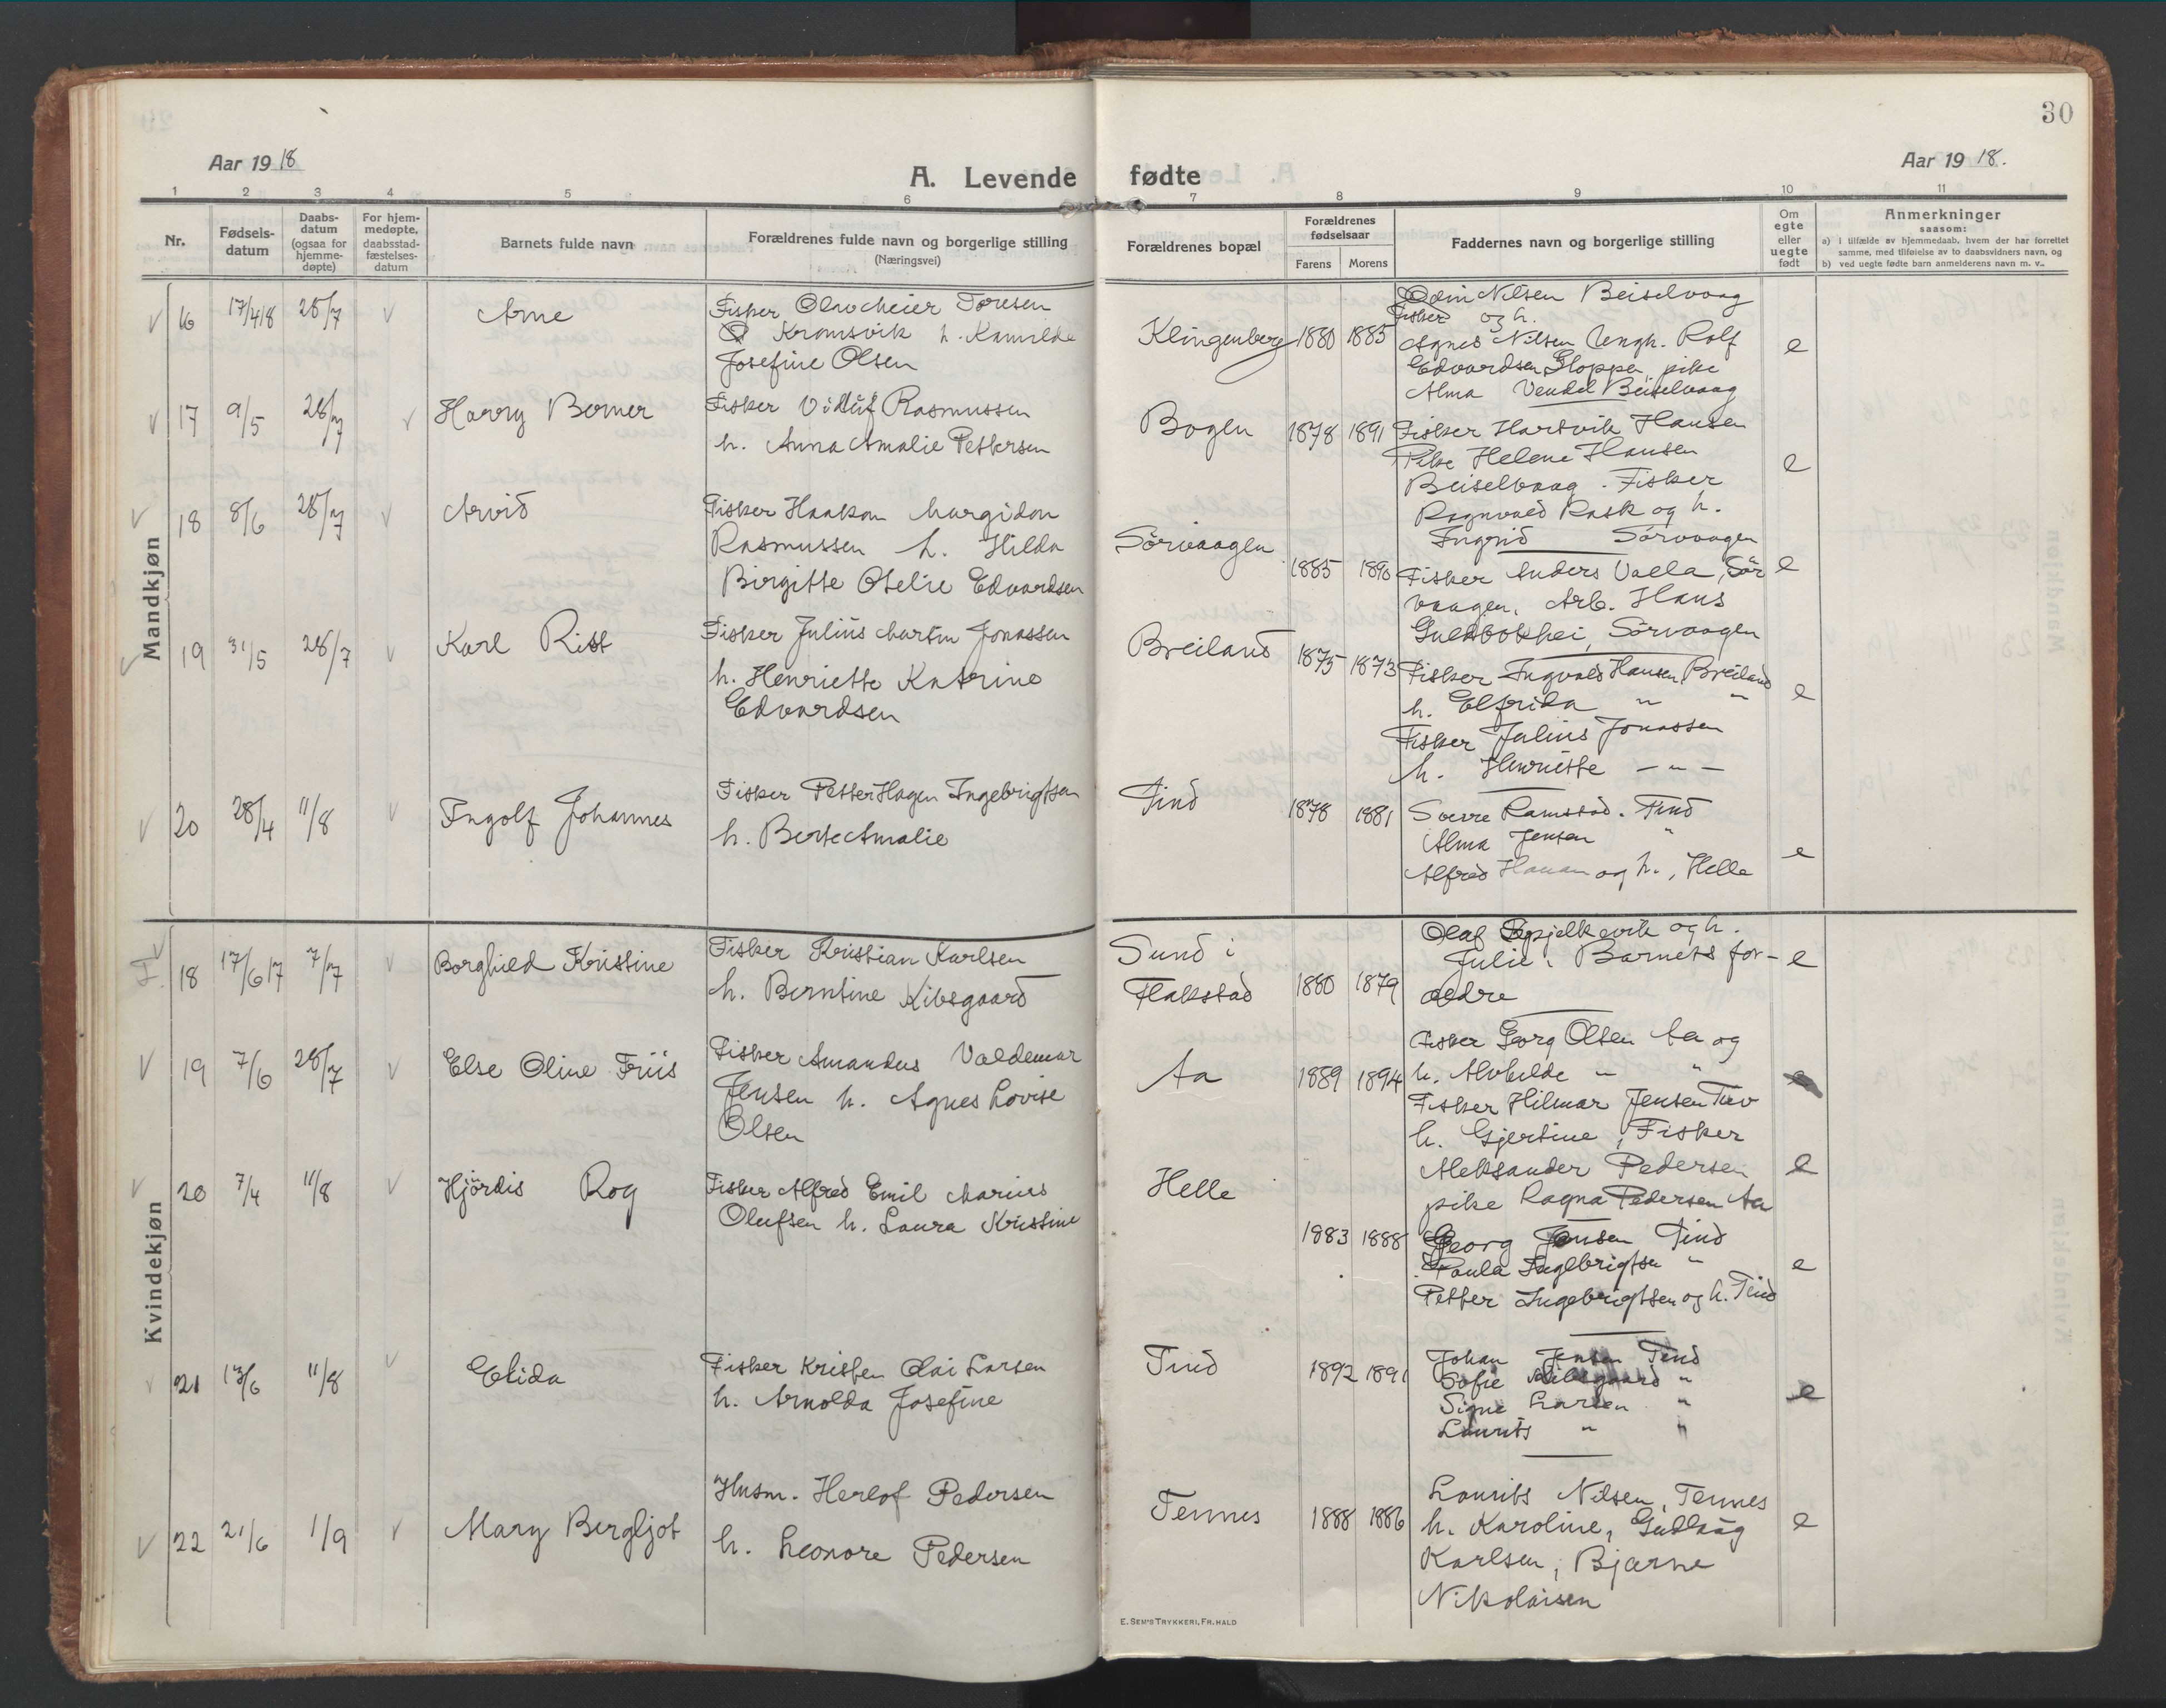 30
Aar 1918
A. Levende fødte
Aar 1918.
1 2 3 4 5 6 7 8 9 10 11
Nr.
Fødsels-
datum
Daabs-
datum
(ogsaa for
hjemme-
døpte)
For hjem-
medøpte,
daabsstad-
fæstelses-
datum
Barnets fulde navn
Forældrenes fulde navn og borgerlige stilling
(Næringsvei)
Forældrenes bopæl
Forældrenes
fødselsaar
Farens Morens
Faddernes navn og borgerlige stilling
Om
egte
eller
uegte
født
Anmerkninger
saasom:
a) i tilfælde av hjemmedaab, hvem der har forrettet
samme, med tilføielse av to daabsvidners navn, og
b) ved uegte fødte barn anmelderens navn m. v..
Mandkjøn
16 17/4 18 28/7 Arne
Fisker Toresen
Kramsvik h.
Josefine Olsen
Klingenberg 1880 1885
Odin Nilsen Beiselvaag
Fisker og h.
Agnes Nilsen Ungk. Rolf
Edvardsen, pike
Alma Beiselvaag
e
17 9/5 28/7 Harry Berner
Fisker Rasmussen
h. Anna Amalie Pettersen
Bogen 1878 1891
Fisker Hartvik Hansen
Pike Helene Hansen
Beiselvaag. Fisker
Ragnvald Rask og h.
Ingrid Sörvaagen
e
18 8/6 28/7 Arvid
Fisker Haakon Margidon
Rasmussen h. Hilda
Birgitte Otelie Edvardsen
Sörvaagen 1885 1890
Fisker Anders Valla, Sör
vaagen, Arb. Hans
Sörvaagen
e
19 31/5 28/7 Karl Rist
Fisker Julius Martin Jonassen
h. Henriette Katrine
Edvardsen
Breiland 1875 1873
Fisker Ingvald Hansen, Breiland
h. Elfrida " "
Fisker Julius Jonassen
h. Henriette — " —
e
20 28/4 11/8 Ingolf Johannes
Fisker Petter Hagen Ingebrigtsen
h. Berte Amalie
Tind 1878 1881
Sverre Ramstad. Tind
Alma Jensen "
Alfred og h., Helle
e
Kvindekjøn
F. 18 17/6 17 7/7 Borghild Kristine
Fisker Kristian Karlsen
h. Berntine Kibsgaard
Sund i
Flakstad
1880 1879
Olaf og h.
Julie. Barnets for-
ældre
e
19 7/6 28/7 Else Oline Friis
Fisker Amandus Valdemar
Jensen h. Agnes Lovise
Olsen
Aa 1889 1894
Fisker Georg Olsen Aa og
h. Alvhilde " "
Fisker Hilmar Jensen
h. Gjertine, Fisker
Aleksander Pedersen
pike Ragna Pedersen Aa
e
20 7/4 11/8 Hjördis Rog
Fisker Alfred Emil Marius
Olufsen h. Laura Kristine
Helle 1883 1888
Georg Jensen Tind
Paula Ingebrigtsen "
Petter Ingebrigtsen og h. Tind
e
21 13/6 11/8 Elida
Fisker Kristen Olai Larsen
h. Arnolda Josefine
Tind 1892 1891
Johan Jensen Tind
Sofie Kibsgaard "
Signe Larsen "
Laurits " "
e
22 21/6 1/9 Mary Bergljot
Husm. Herlof Pedersen
h. Leonore Pedersen
Tennes 1888 1886
Laurits Nilsen, Tennes
h. Karoline, Gudlaug
Karlsen, Bjarne
Nikolaisen
e
E. SEM'S TRYKKERI, FR. HALD